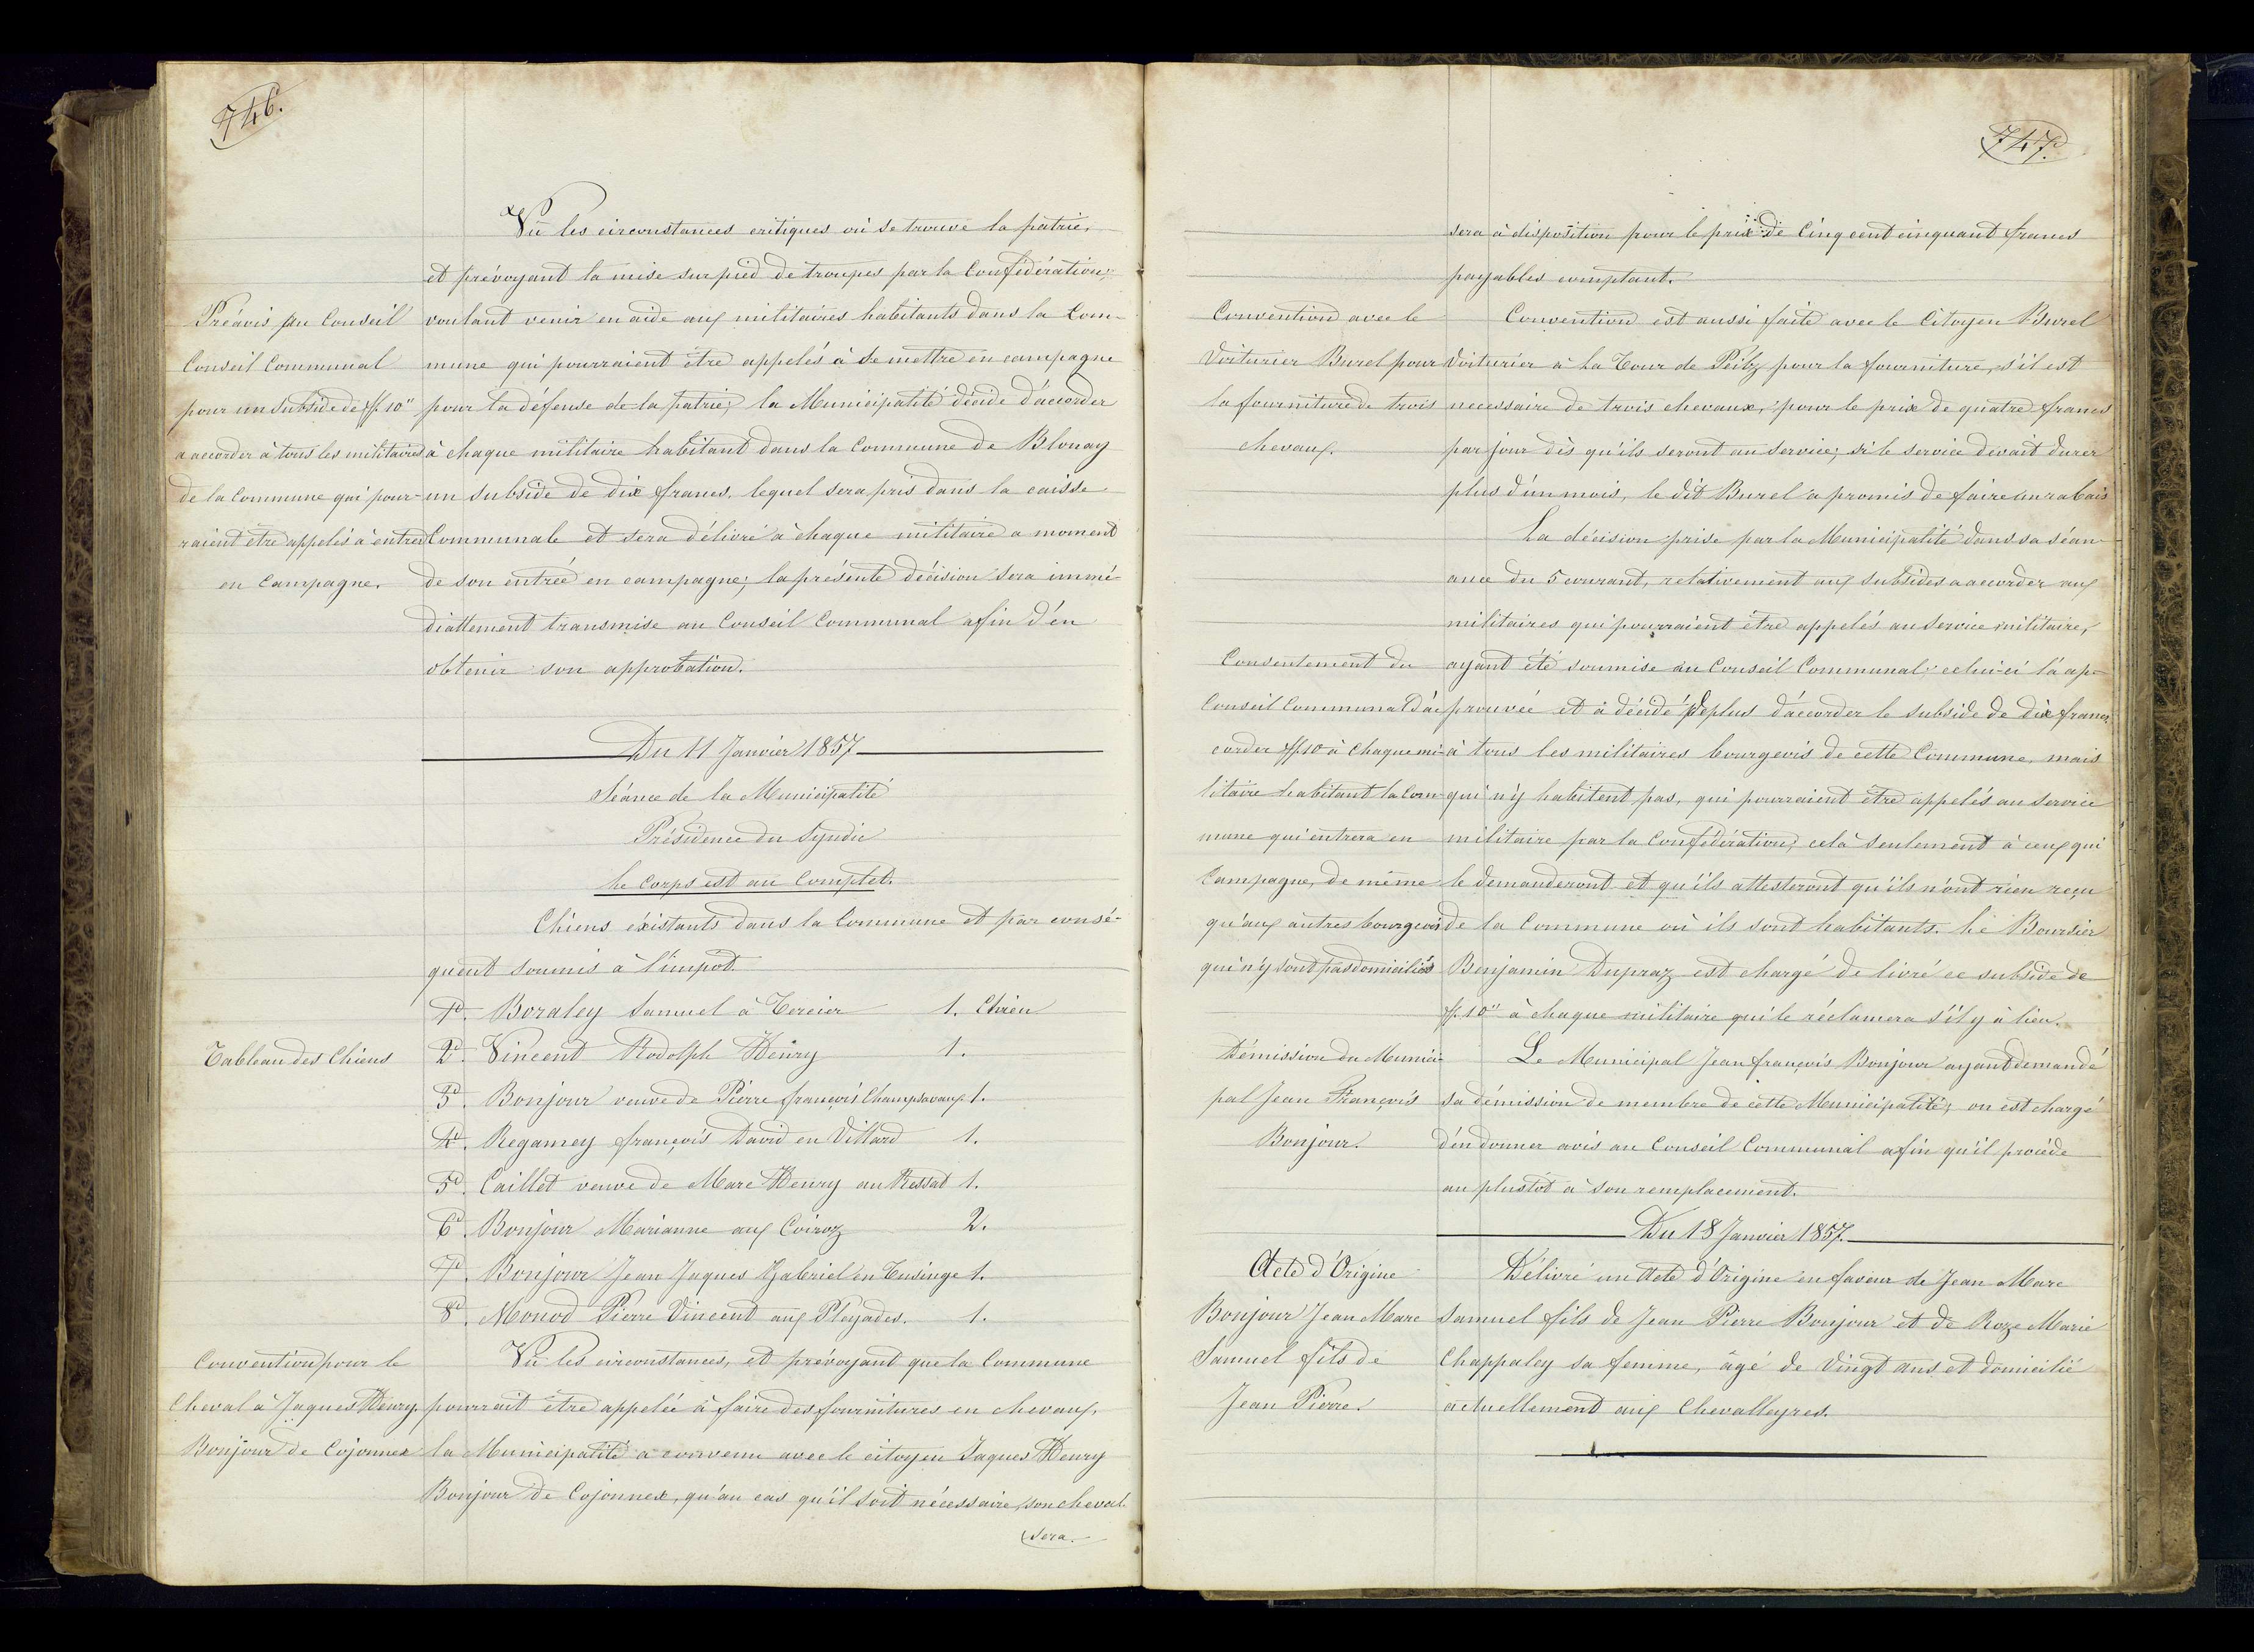 746.
Vû les circonstances critiques où se trouve la patrie,
et prévoyant la mise sur pied de troupes par la Confédération;
Préavis au Conseil
Conseil Communal
pour un subside de ff. 10"
a accorder à tous les militaires
de la Commune qui pour-
raient être appelés à entrer
en Campagne.
voulant venir en aide aux militaires habitants dans la Com-
mune qui pourraient être appelés à se mettre en campagne
pour la défense de la patrie, la Municipalité décide d'accorder
à chaque militaire habitant dans la Commune de Blonay
un subside de dix francs, lequel sera pris dans la caisse
Communale et sera délivré à chaque militaire a moment
de son entréé en campagne; la présente décision sera immé-
diattement transmise au Conseil Communal afin d'en
obtenir son approbation.
Du 11 Janvier 1857
Séance de la Municipalité
Présidence du Syndic
Le Corps est au Complet.
Chiens éxistants dans la Commune et par consé-
quent soumis à l'impot.
Tableau des Chiens
1º. Boraley Samuel à Tercier 1. Chien
2º. Vincent Rodolph Henry 1.
3º. Bonjour veuve de Pierre françois Champsavaux 1.
4º. Regamey françois David en Villard 1.
5º. Caillet veuve de Marc Henry au Ressat 1.
6º. Bonjour Marianne aux Coiroz 2.
7º. Bonjour Jean Jaques Gabriel en Tusinge 1.
8º. Monod Pierre Vincent aux Pleyades. 1.
Convention pour le
Cheval à Jaques Henry
Bonjour de Cojonnex
Vû les circonstances, et prévoyant que la Commune
pourrait être appelée à faire des fournitures en chevaux,
la Municipalité a convenu avec le citoyen Jaques Henry
Bonjour de Cojonnex, qu'au cas qu'il soit nécessaire, son cheval
sera.
747.
sera à disposition pour le prix de Cinq cent cinquant francs
payables comptant.
Convention avec le
Voiturier Burel pour
la fourniture de trois
chevaux.
Convention est aussi faite avec le Citoyen Burel
Voiturier à la Tour de Peilz pour la fourniture, s'il est
necessaire de trois chevaux, pour le prix de quatre francs
par jour dès qu'ils seront au service; si le service devait durer
plus d'un mois, le dit Burel a promis de faire un rabais
La décision prise par la Municipalité dans sa séan-
ance du 5 courant, relativement aux subsides a accorder aux
militaires qui pourraient être appelés au service militaire,
Consentement du
Conseil Communal d'ac
corder ff. 10 à chaque mi-
litaire habitant la Com-
mune qui entrera en
Campagne, de même
qu'aux autres bourgeois
qui n'y sont pas domiciliés
ayant été soumise au Conseil Communal; celui-ci l'a ap-
prouvée et a décidé de plus d'accorder le subside de dix francs
à tous les militaires bourgeois de cette Commune, mais
qui n'y habitent pas, qui pourraient être appelés au service
militaire par la Confédération, cela seulement à ceux qui
le demanderont et qu'ils attesteront qu'ils n'ont rien reçu
de la Commune où ils sont habitants. Le Boursier
Benjamin Dupraz est chargé de livré ce subside de
ff. 10" à chaque militaire qui le réclamera s'il y à lieu.
Démission du Munici-
pal Jean François
Bonjour.
Le Municipal Jean françois Bonjour ayant demandé
sa démission de membre de cette Municipalité, on est chargé
d'en donner avis au Conseil Communal afin qu'il procède
au plustôt à son remplacement.
Du 18 Janvier 1857.
Acte d'Origine
Bonjour Jean Marc
Samuel fils de
Jean Pierre.
Délivré un Acte d'Origine en faveur de Jean Marc
Samuel fils de Jean Pierre Bonjour et de Roze Marie
Chappaley sa femme, âgé de Vingt ans et domicilié
actuellement aux Chevalleyres.